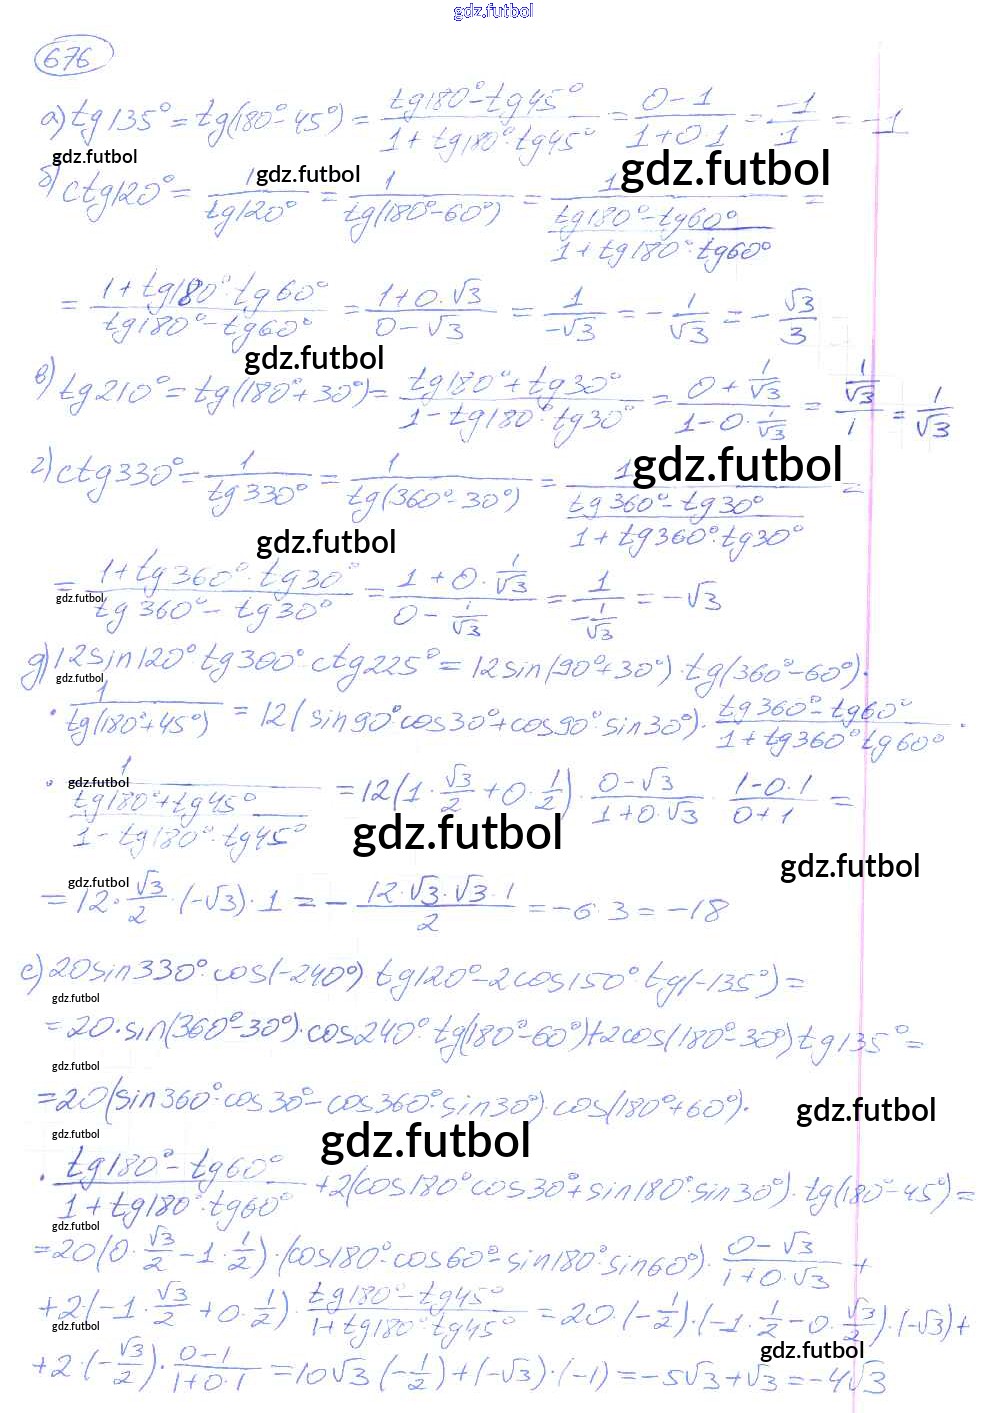 gdz.futbol
676
а) tg135° = tg(180°-45°) = (tg180°-tg45°)/(1+tg180°·tg45°) = (0-1)/(1+0·1) = -1/1 = -1
gdz.futbol
gdz.futbol
gdz.futbol
б) ctg120° = 1/tg120° = 1/tg(180°-60°) = 1/((tg180°-tg60°)/(1+tg180°·tg60°)) =
= (1+tg180°·tg60°)/(tg180°-tg60°) = (1+0·√3)/(0-√3) = 1/-√3 = -1/√3 = -√3/3
gdz.futbol
в) tg210° = tg(180°+30°) = (tg180°+tg30°)/(1-tg180°·tg30°) = (0+1/√3)/(1-0·1/√3) = (1/√3)/1 = 1/√3
gdz.futbol
г) ctg330° = 1/tg330° = 1/tg(360°-30°) = 1/((tg360°-tg30°)/(1+tg360°·tg30°)) =
gdz.futbol
= (1+tg360°·tg30°)/(tg360°-tg30°) = (1+0·1/√3)/(0-1/√3) = 1/(-1/√3) = -√3
gdz.futbol
д) 12sin120° tg300°·ctg225° = 12sin(90°+30°)·tg(360°-60°)·
gdz.futbol
· 1/tg(180°+45°) = 12(sin90°·cos30°+cos90°·sin30°)·(tg360°-tg60°)/(1+tg360°tg60°)·
gdz.futbol
· 1/((tg180°+tg45°)/(1-tg180°·tg45°)) = 12(1·√3/2+0·1/2)·(0-√3)/(1+0·√3)·(1-0·1)/(0+1) =
gdz.futbol
gdz.futbol
gdz.futbol
= 12·√3/2·(-√3)·1 = -(12·√3·√3·1)/2 = -6·3 = -18
е) 20sin330°·cos(-240°) tg120°-2cos150°·tg(-135°) =
gdz.futbol
= 20·sin(360°-30°)·cos240°·tg(180°-60°)+2cos(180°-30°)tg135° =
gdz.futbol
= 20(sin360°·cos30°-cos360°·sin30°)·cos(180°+60°)·
gdz.futbol
gdz.futbol
gdz.futbol
· (tg180°-tg60°)/(1+tg180°·tg60°) +2(cos180°cos30°+sin180°·sin30°)·tg(180°-45°) =
gdz.futbol
= 20(0·√3/2-1·1/2)·(cos180°·cos60°-sin180°·sin60°)·(0-√3)/(1+0·√3) +
+2·(-1·√3/2+0·1/2)·(tg180°-tg45°)/(1+tg180°·tg45°) = 20·(-1/2)·(-1·1/2-0·√3/2)·(-√3)+
gdz.futbol
gdz.futbol
+2·(-√3/2)·(0-1)/(1+0·1) = 10√3(-1/2)+(-√3)·(-1) = -5√3+√3 = -4√3